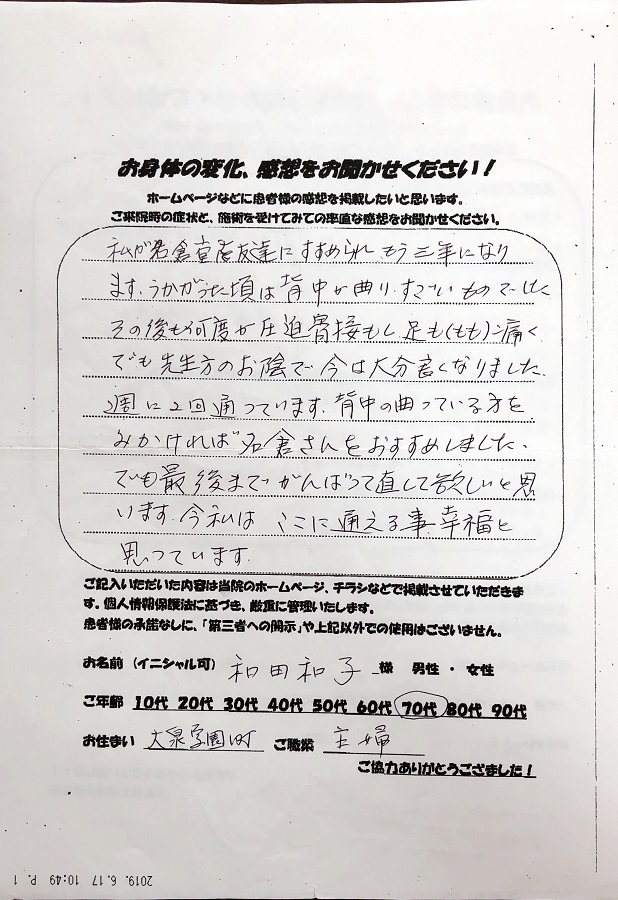 お身体の変化、感想をお聞かせください！
ホームページなどに患者様の感想を掲載したいと思います。
ご来院時の症状と、施術を受けてみての率直な感想をお聞かせください。
私が名倉堂を友達にすすめられ もう三年になり
ます。うかがうた頃は背中が曲り、すごいものでした
その後も何度か圧迫骨接もし 足も(もも)痛く
でも先生方のお陰で 今は大分良くなりました。
2週に2回通つています。背中の曲っている方を
みかければ 名倉さんをおすすめしました、
でも最後までがんばって直して欲しいと思
います。今私は ここに通える事、幸福と
思つています。
ご記入いただいた内容は当院のホームページ、チラシなどで掲載させていただきま
す。個人情報保護法に基づき、厳重に管理いたします。
患者様の承諾なしに、「第三者への開示」や上記以外での使用はございません。
お名前（イニシャル可） 和田和子 様 男性 ・ 女性
ご年齢 10代 20代 30代 40代 50代 60代 70代 80代 90代
お住まい 大泉学園町 ご職業 主婦
ご協力ありがとうございました！
2019. 6.17 10:49 P. 1